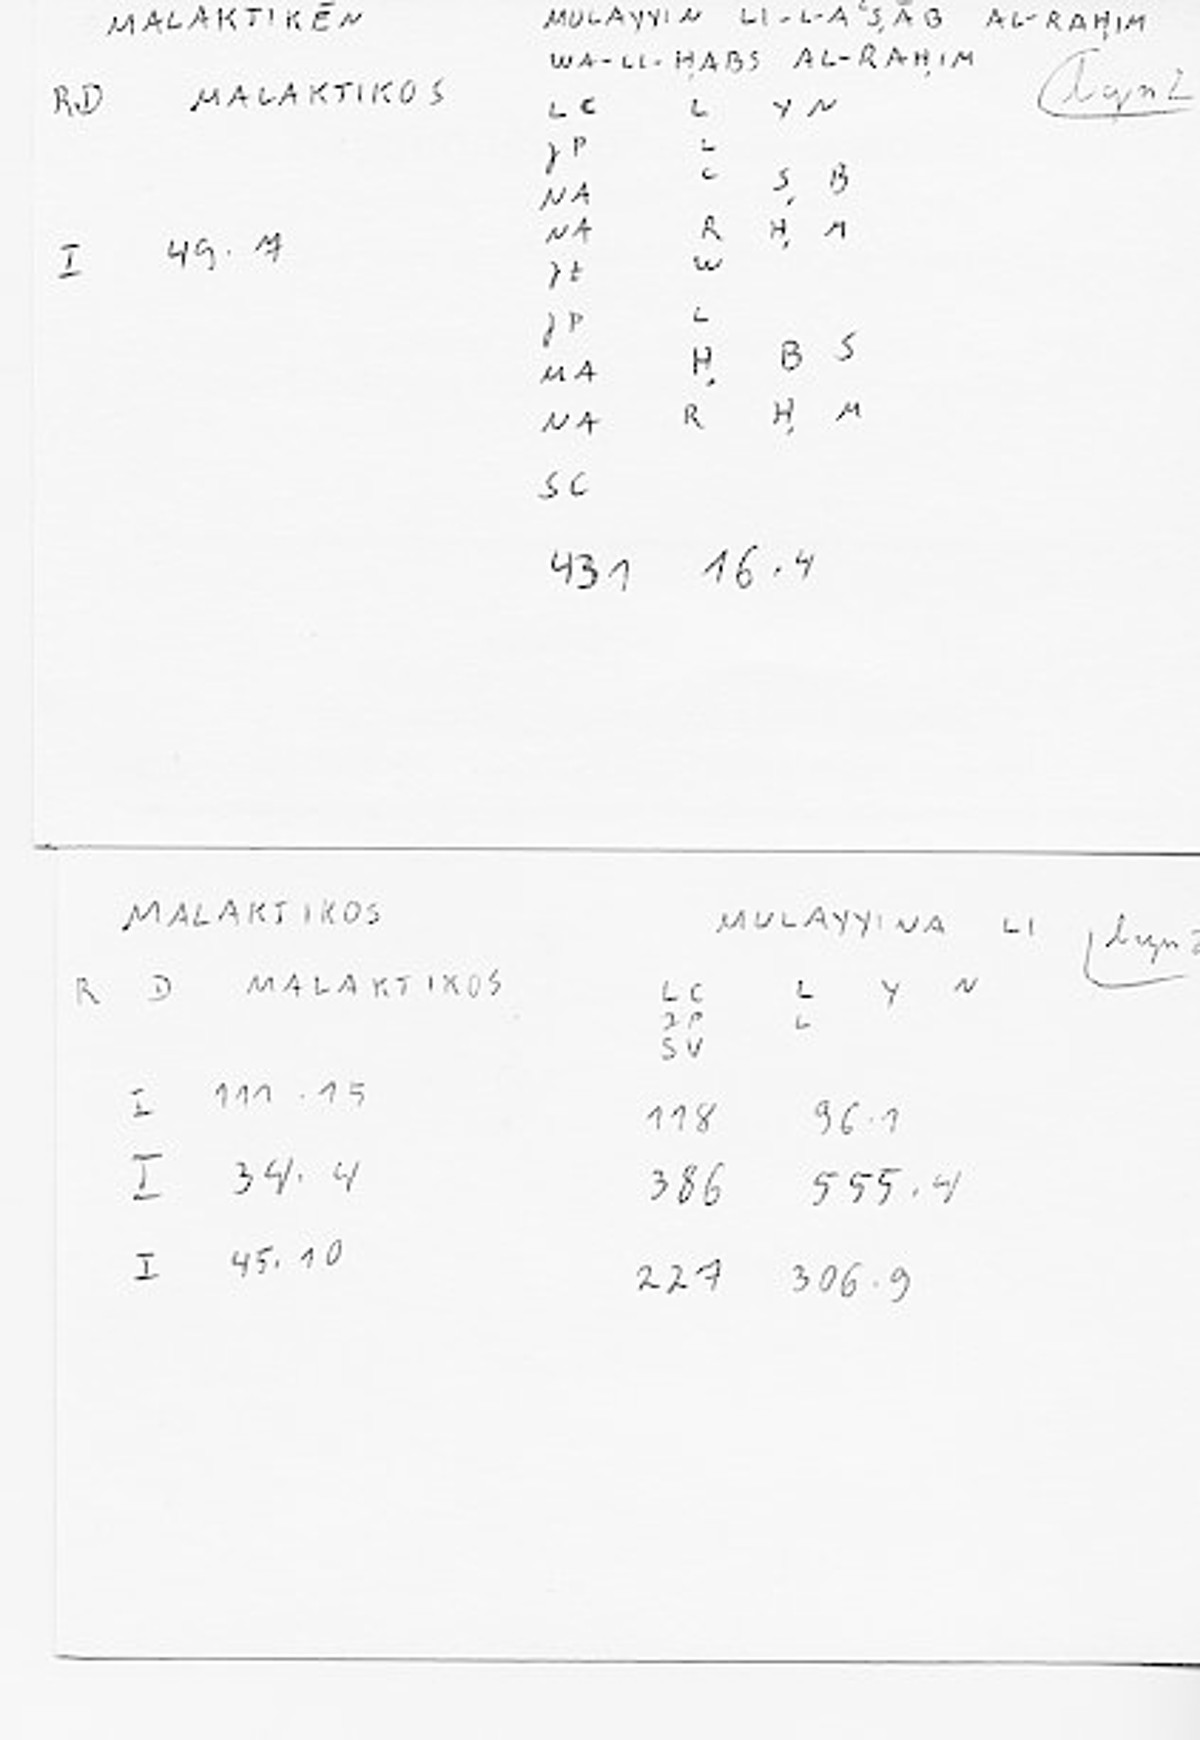 MALAKTIKĒN MULAYYIN LI-L-AʿṢĀB AL-RAḤIM
WA-LI-ḤABS AL-RAḤIM
RD MALAKTIKOS LC L Y N
JP L
NA ʿ Ṣ B
NA R Ḥ M
I 49.7 Jt W
JP L
MA Ḥ B S
NA R Ḥ M
SC
431 16.4
MALAKTIKOS MULAYYINA LI
R D MALAKTIKOS LC L Y N
JP L
SV
I 111.15 118 96.1
I 34.4 386 555.4
I 45.10 227 306.9